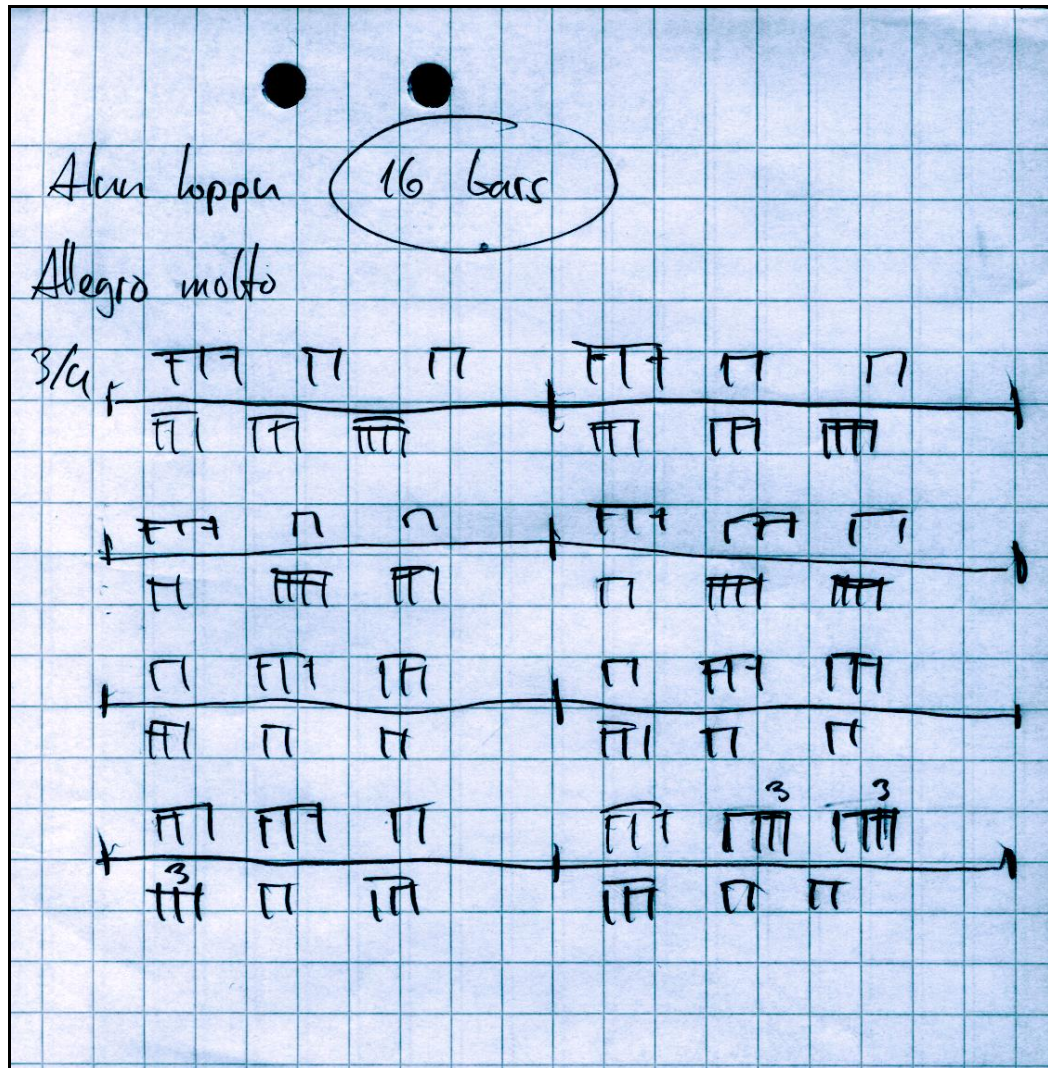 Alun loppu 16 bars
Allegro molto
3/4
3 3
3